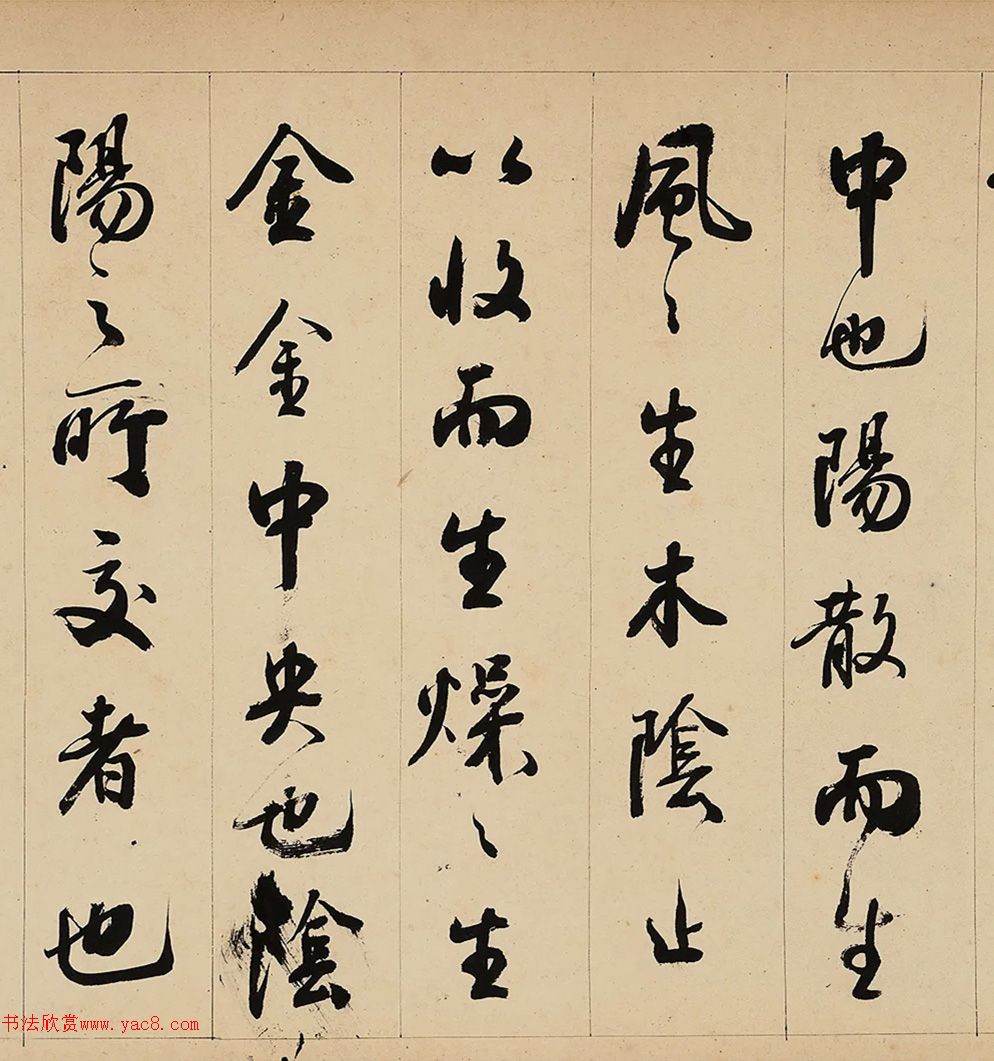 中也陽散而生
風〻生木陰止
以收而生燥〻生
金金中央也陰
陽之所交者也
书法欣赏www.yac8.com